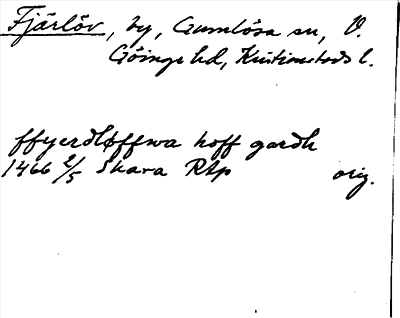 Fjärlöv, by, Gumlösa sn, V.
Göinge hd, Kristianstads l.
ffyerdløffwa hoff gardh
1466 2/5 Skara Rtp orig.